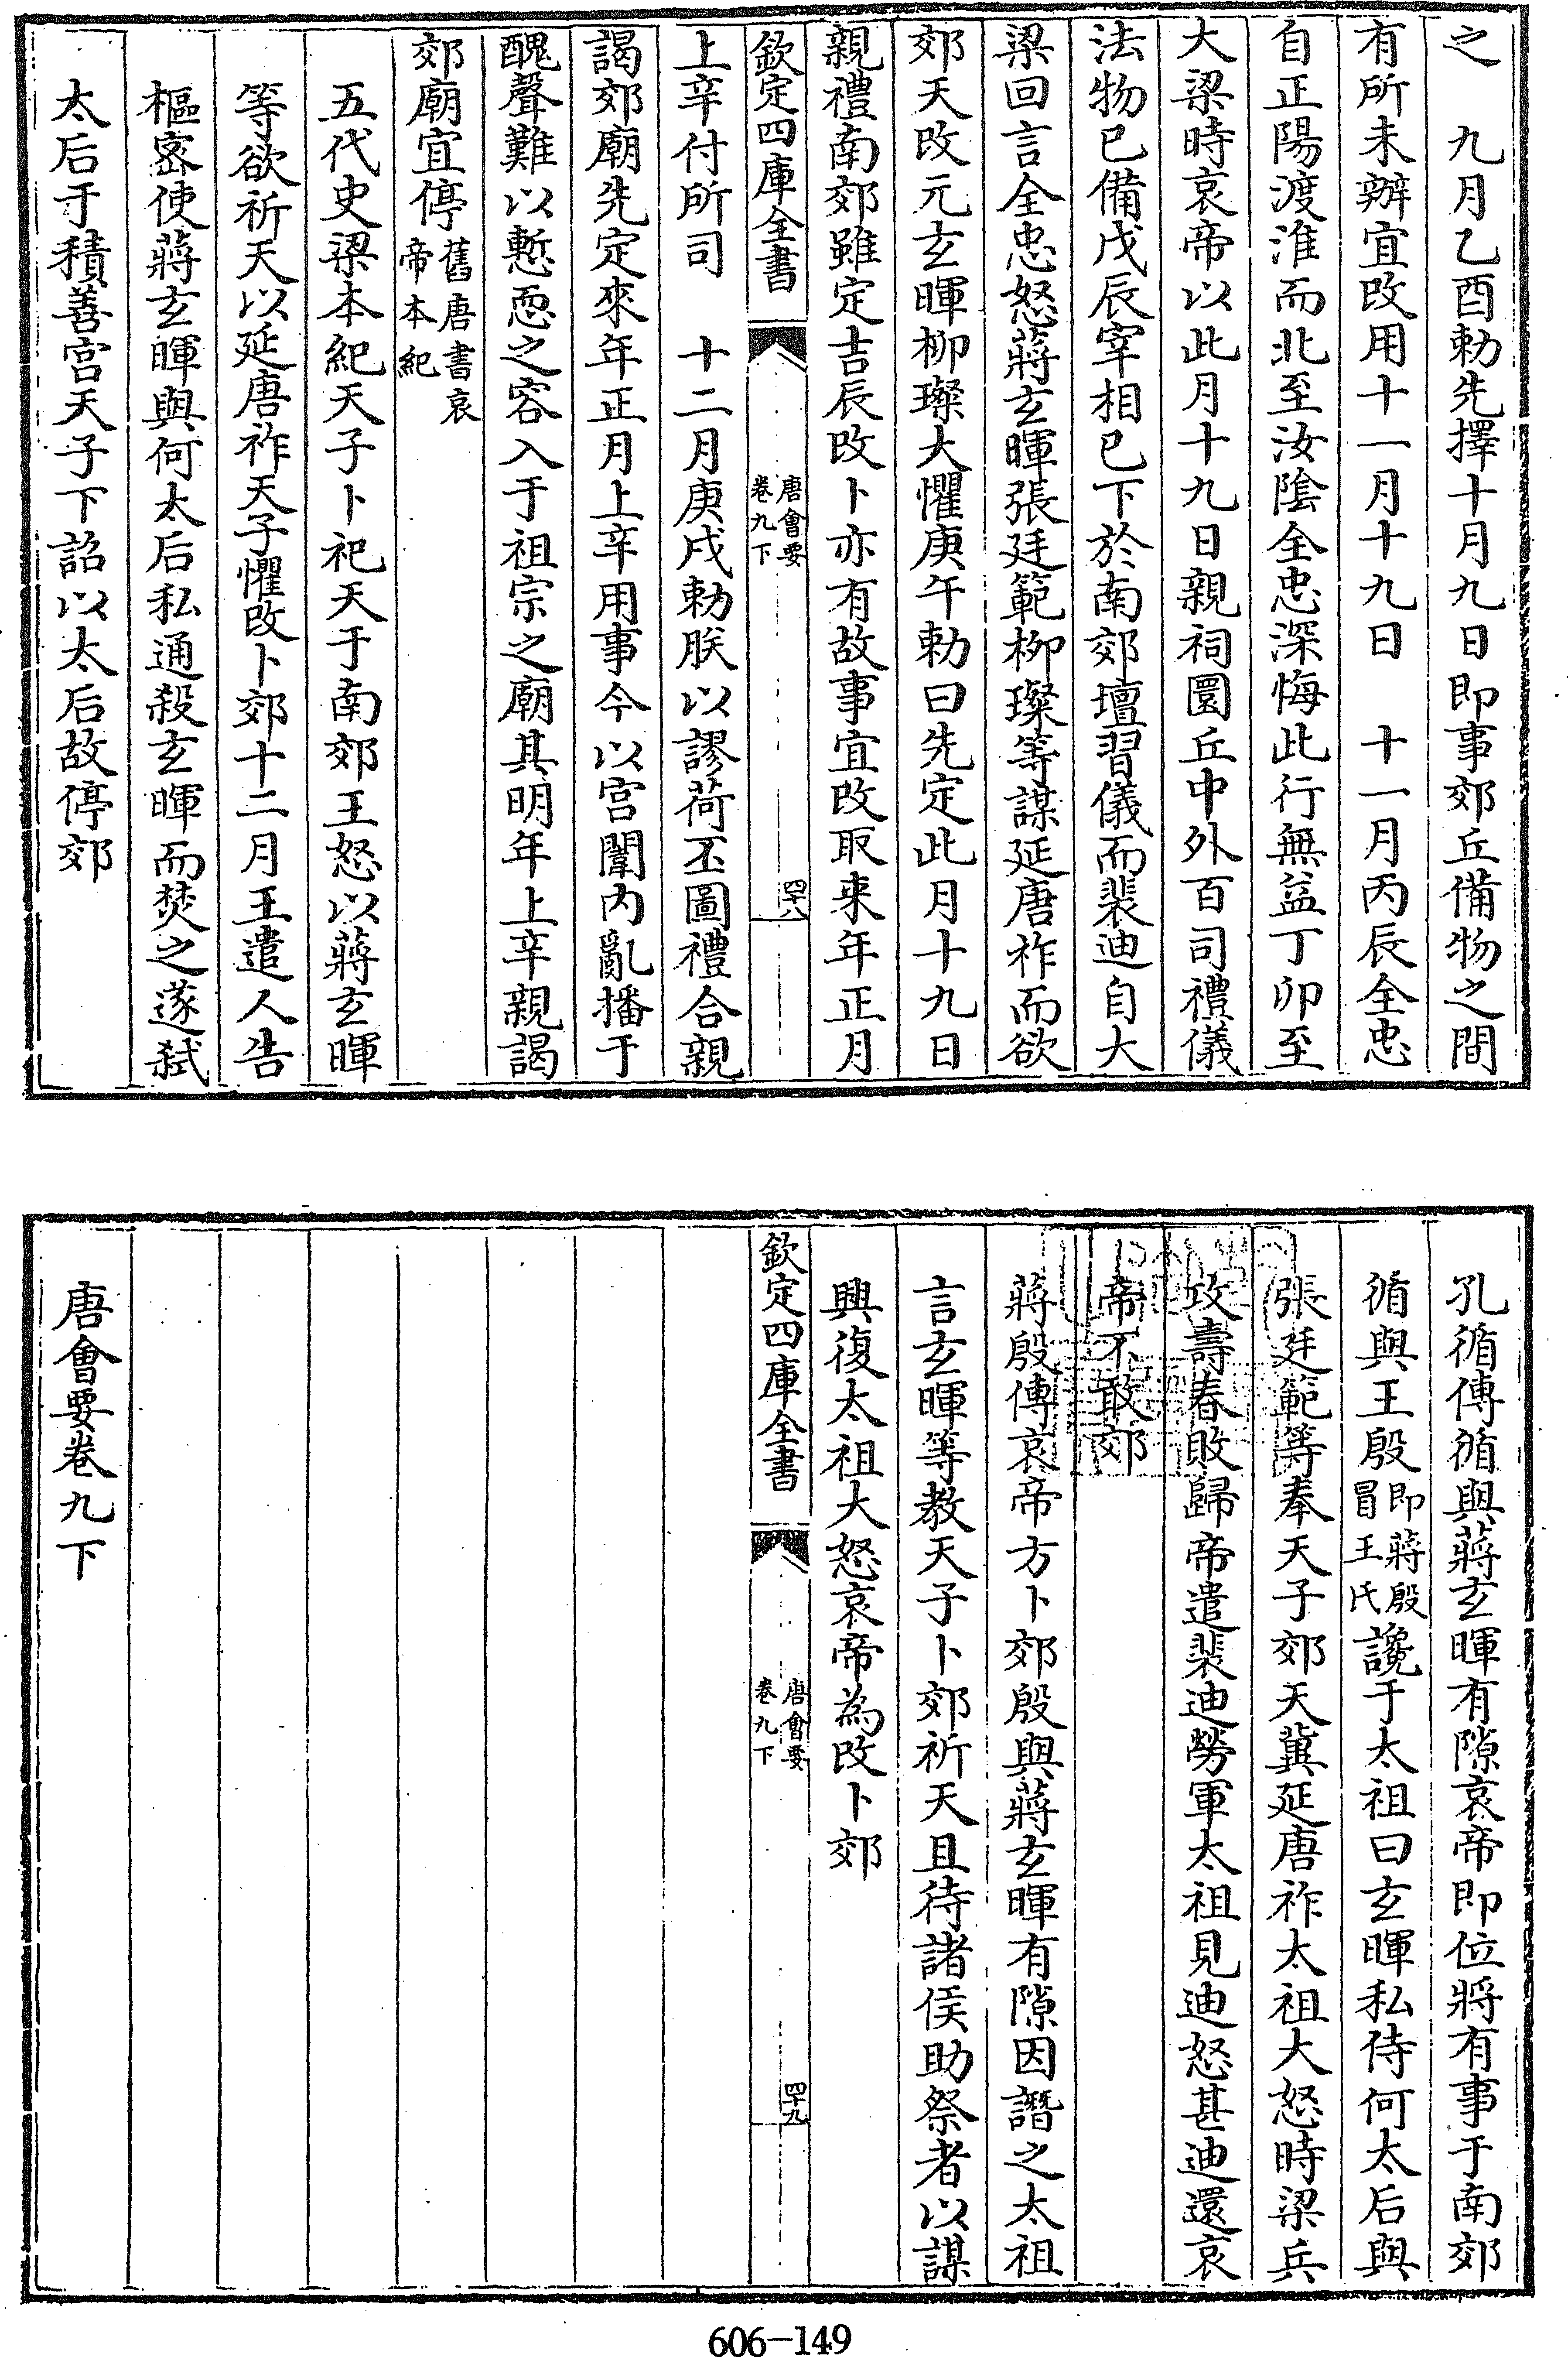 之　九月乙酉勅先擇十月九日即事郊丘備物之間
有所未辦宜改用十一月十九日　十一月丙辰全忠
自正陽渡淮而北至汝陰全忠深悔此行無益丁卯至
大梁時哀帝以此月十九日親祠圜丘中外百司禮儀
法物已備戊辰宰相已下於南郊壇習儀而裴迪自大
梁回言全忠怒蔣玄暉張廷範柳璨等謀延唐祚而欲
郊天改元玄暉柳璨大懼庚午勅曰先定此月十九日
親禮南郊雖定吉辰改卜亦有故事宜改取来年正月
欽定四庫全書
唐會要
卷九下
四十八
上辛付所司　十二月庚戌勅朕以謬荷丕圖禮合親
謁郊廟先定來年正月上辛用事今以宫闈内亂播于
醜聲難以慙恧之容入于祖宗之廟其明年上辛親謁
郊廟宜停舊唐書哀
帝本紀
五代史梁本紀天子卜祀天于南郊王怒以蔣玄暉
等欲祈天以延唐祚天子懼改卜郊十二月王遣人告
樞宻使蔣玄暉與何太后私通殺玄暉而焚之遂弑
太后于積善宫天子下詔以太后故停郊
孔循傳循與蔣玄暉有隙哀帝即位將有事于南郊
循與王殷即蔣殷
冒王氏讒于太祖曰玄暉私侍何太后與
張廷範等奉天子郊天冀延唐祚太祖大怒時梁兵
攻壽春敗歸帝遣裴迪勞軍太祖見迪怒甚迪還哀
帝不敢郊
蔣殷傳哀帝方卜郊殷與蔣玄暉有隙因譖之太祖
言玄暉等教天子卜郊祈天且待諸侯助祭者以謀
興復太祖大怒哀帝為改卜郊
欽定四庫全書
唐會要
卷九下
四十九
唐會要卷九下
606-149